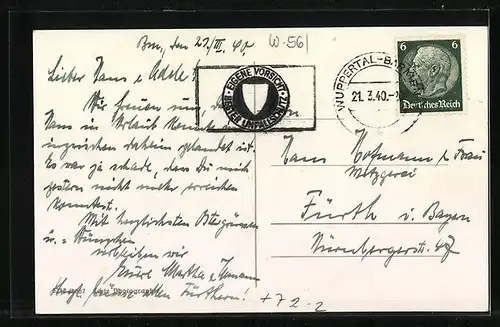 Bm., den 21/III. 40.
W-56
Lieber Hans u. Adele!
Wir freuen uns, dass
Hans in Urlaub kommt
inzwischen daheim gelandet ist.
Es war ja schade, dass Du mich
gestern nicht mehr erreichen
konntest.
Mit herzlichsten Ostergrüssen
u. - Wünschen
verbleiben wir
Eure Martha u.
Herzl. Grüsse allen Fürthern!
EIGENE VORSICHT
BESTER UNFALLSCHUTZ
WUPPERTAL-BA
21.3.40.-
6 6
Deutsches Reich
Hans Hofmann u. Frau
Metzgerei
Fürth i. Bayern
Nürnbergerstr. 47
+72-2